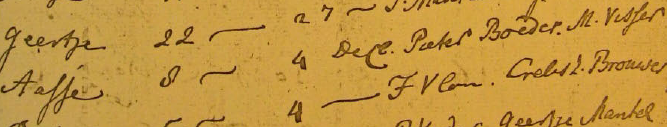 27 ~
Geertje 22 — 4 Decl. Pieter Boeder. M. Visser
Aafje 8 ~ 4 — F Vlam. Crelis Z. Brouwer
Geertje Mantel